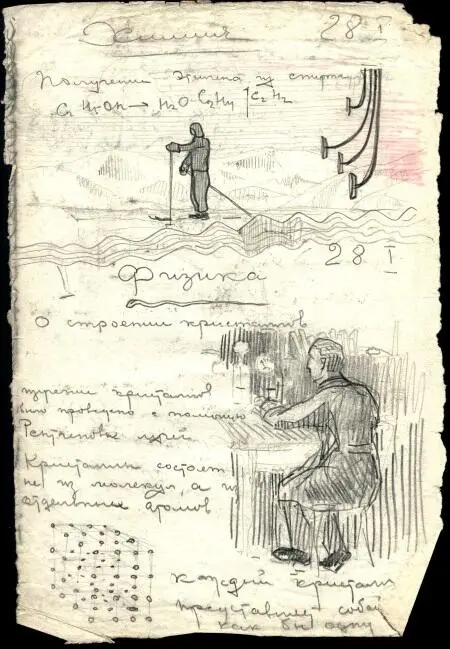 Химия 28 I
Получение Этилена из спирта
C2H5OH → H2O C2H4 ↑ C2H2
28 I
Физика
О строении кристаллов
кристаллов
было проведено с помощью
Рентгеновых лучей
Кристаллы состоят
не из молекул, а из
отдельных атомов
каждый кристалл
представляет собой
как бы одну